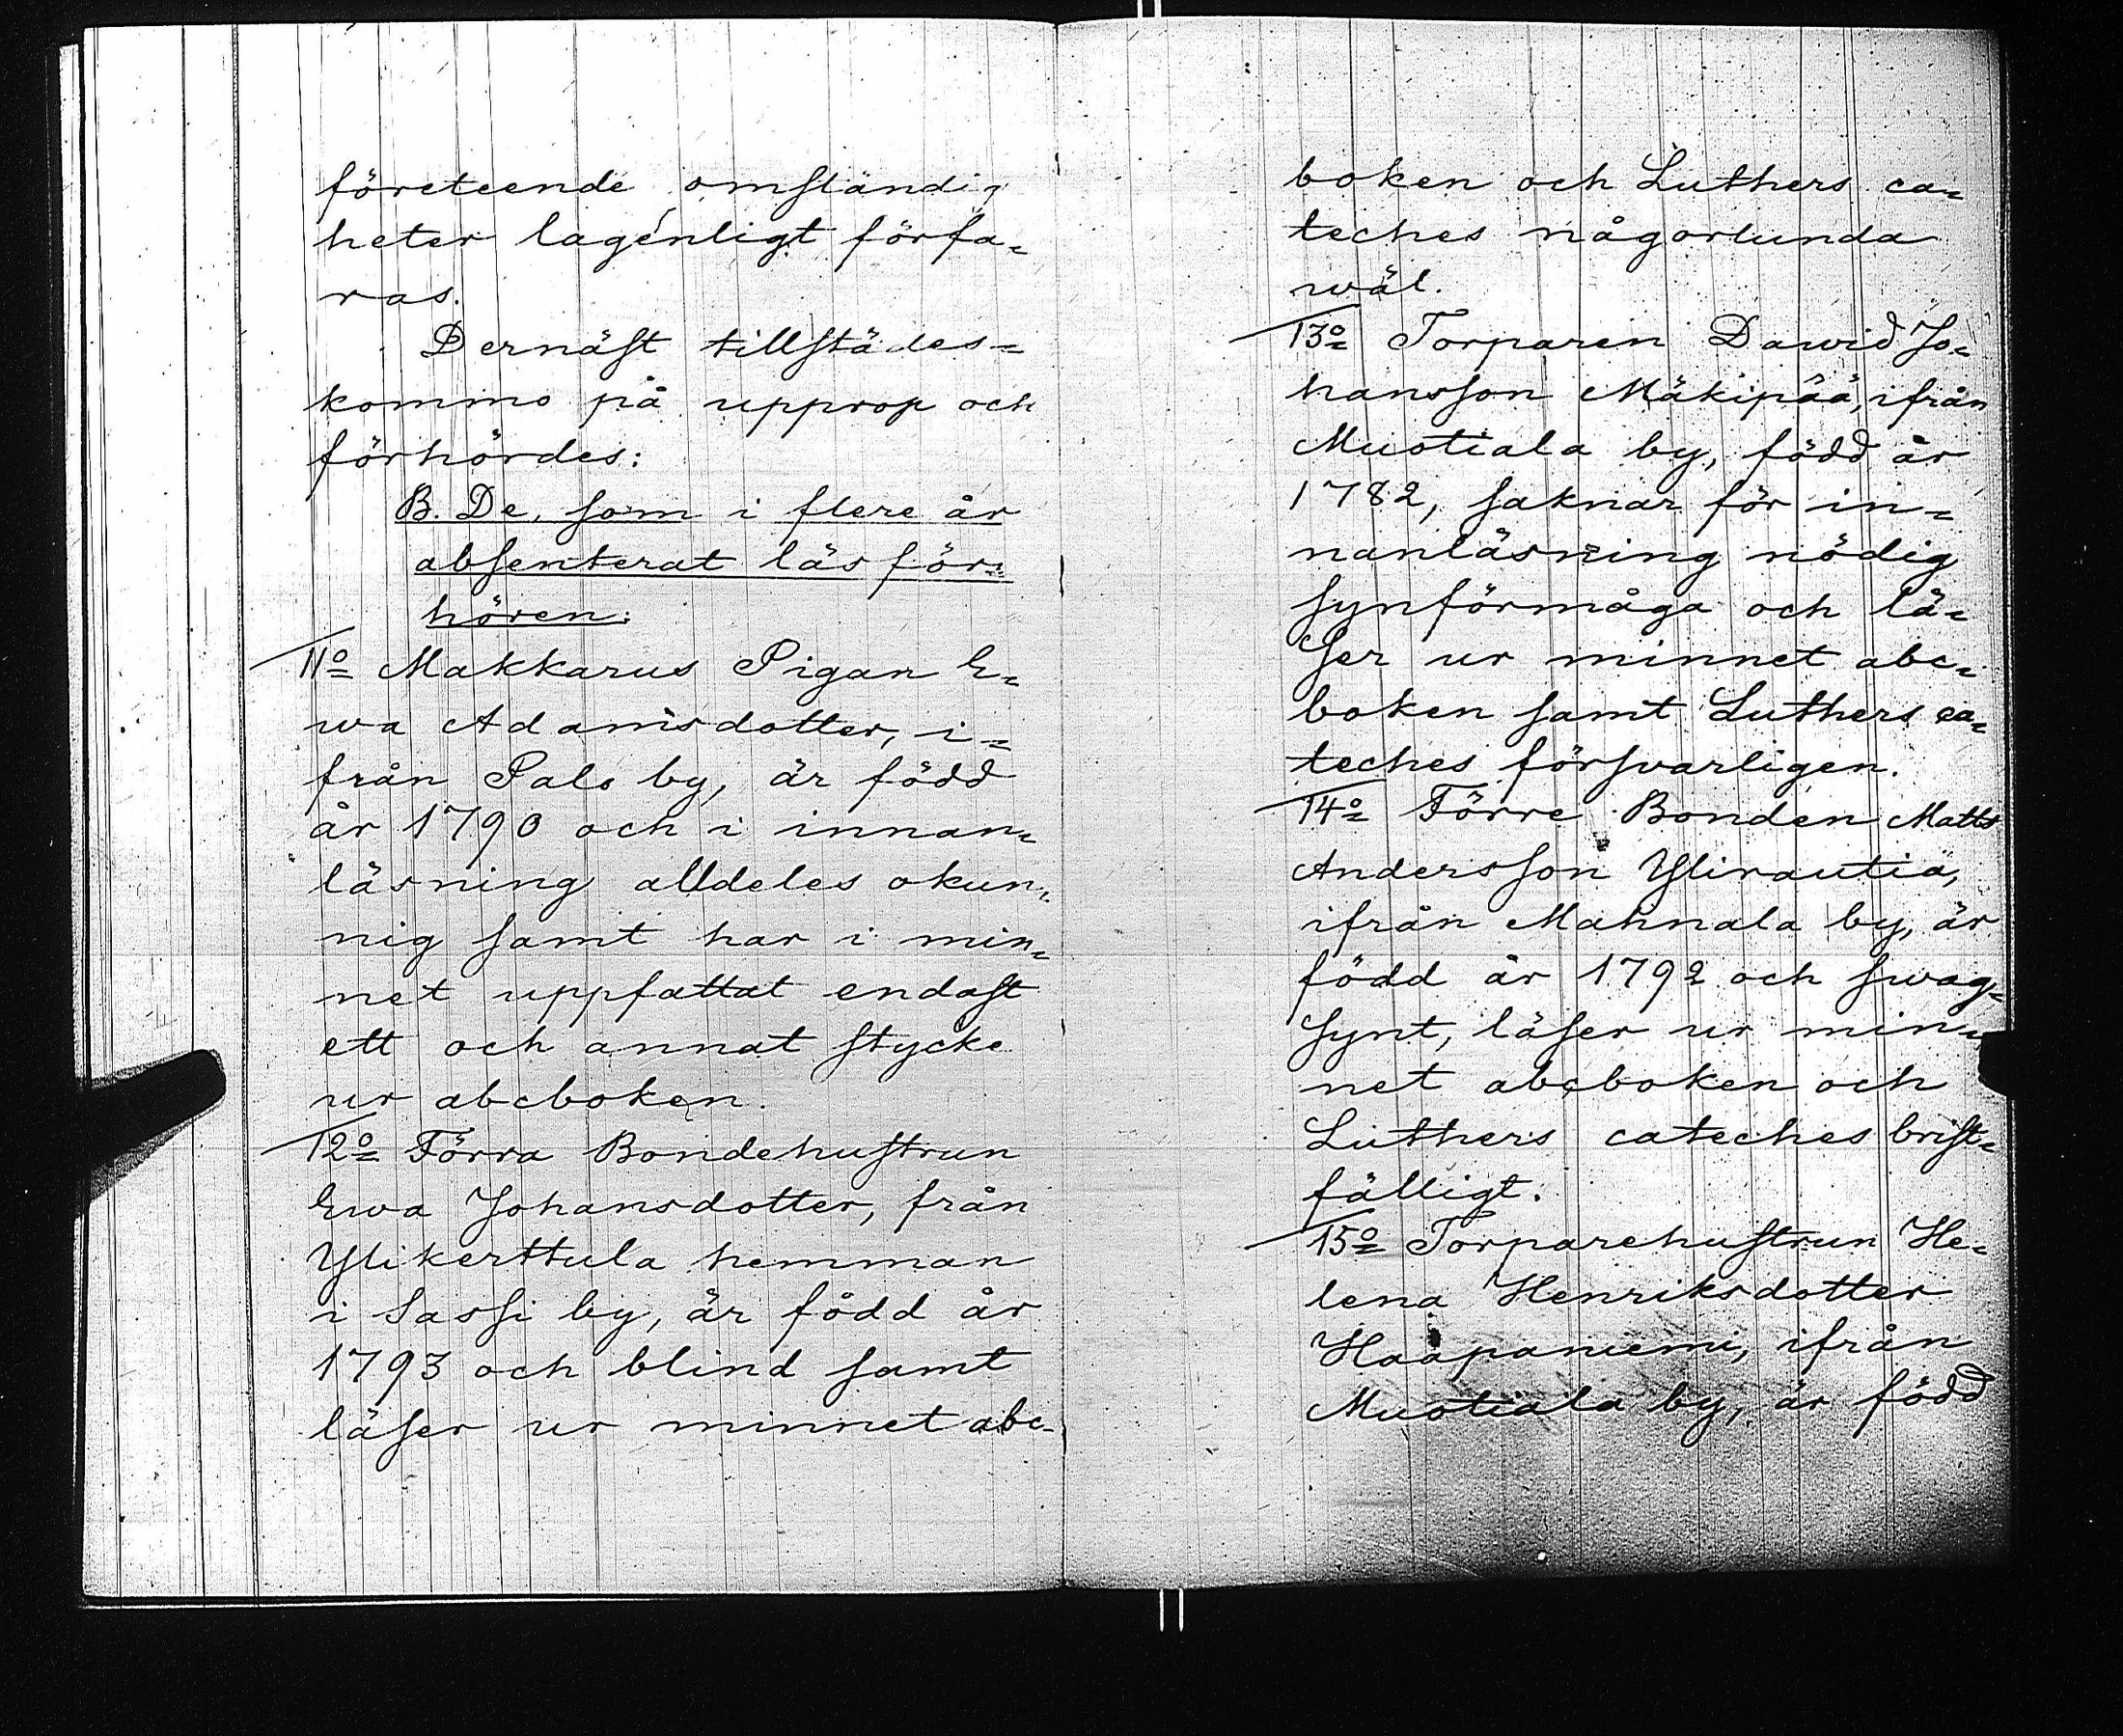 företeende omständig
heter lagenligt förfa=
ras.
Dernäst tillstädes=
kommo på upprop och
förhördes:
B. De, som i flere år
absenterat läsför=
hören:
11o Makkarus Pigan E=
wa Adamsdotter, i=
från Palo by, är född
år 1790 och i innan=
läsning alldeles okun=
nig samt har i min=
net uppfattat endast
ett och annat stycke
ur abcboken.
12o Förra Bondehustrun
Ewa Johansdotter, från
Ylikerttula hemman
i Sassi by, är född år
1793 och blind samt
läser ur minnet abc-
boken och Luthers ca=
teches någorlunda
wäl.
13o Torparen Dawid Jo=
hansson Mäkipää, ifrån
Muotiala by, född år
1782, saknar för in=
nanläsning nödig
synförmåga och lä=
ser ur minnet abc=
boken samt Luthers ca=
teches försvarligen.
14o Förre Bonden Matts
Andersson Ylirautia,
ifrån Mahnala by, är
född år 1792 och swag=
synt, läser ur min=
net abcboken och
Luthers cateches brist=
fälligt.
15o Torparehustrun He=
lena Henriksdotter
Haapaniemi, ifrån
Muotiala by, är född